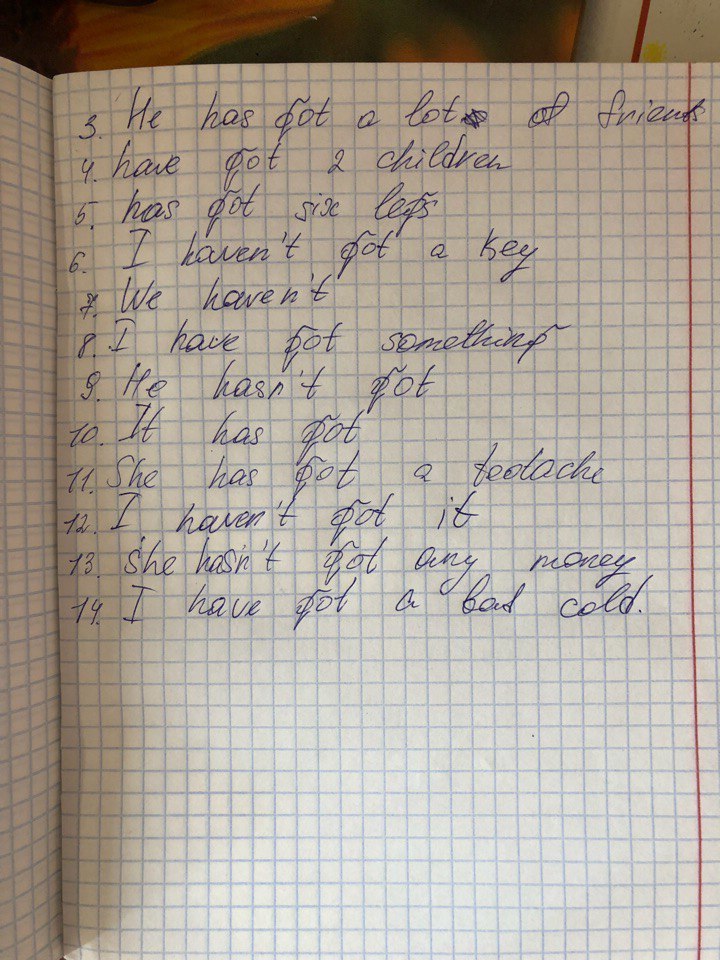 3. He has got a lot of friends
4. have got 2 children
5. has got six legs
6. I haven't got a key
7. We haven't
8. I have got something
9. He hasn't got
10. It has got
11. She has got a teotache
12. I haven't got it
13. she hasn't got any money
14. I have got a bad cold.